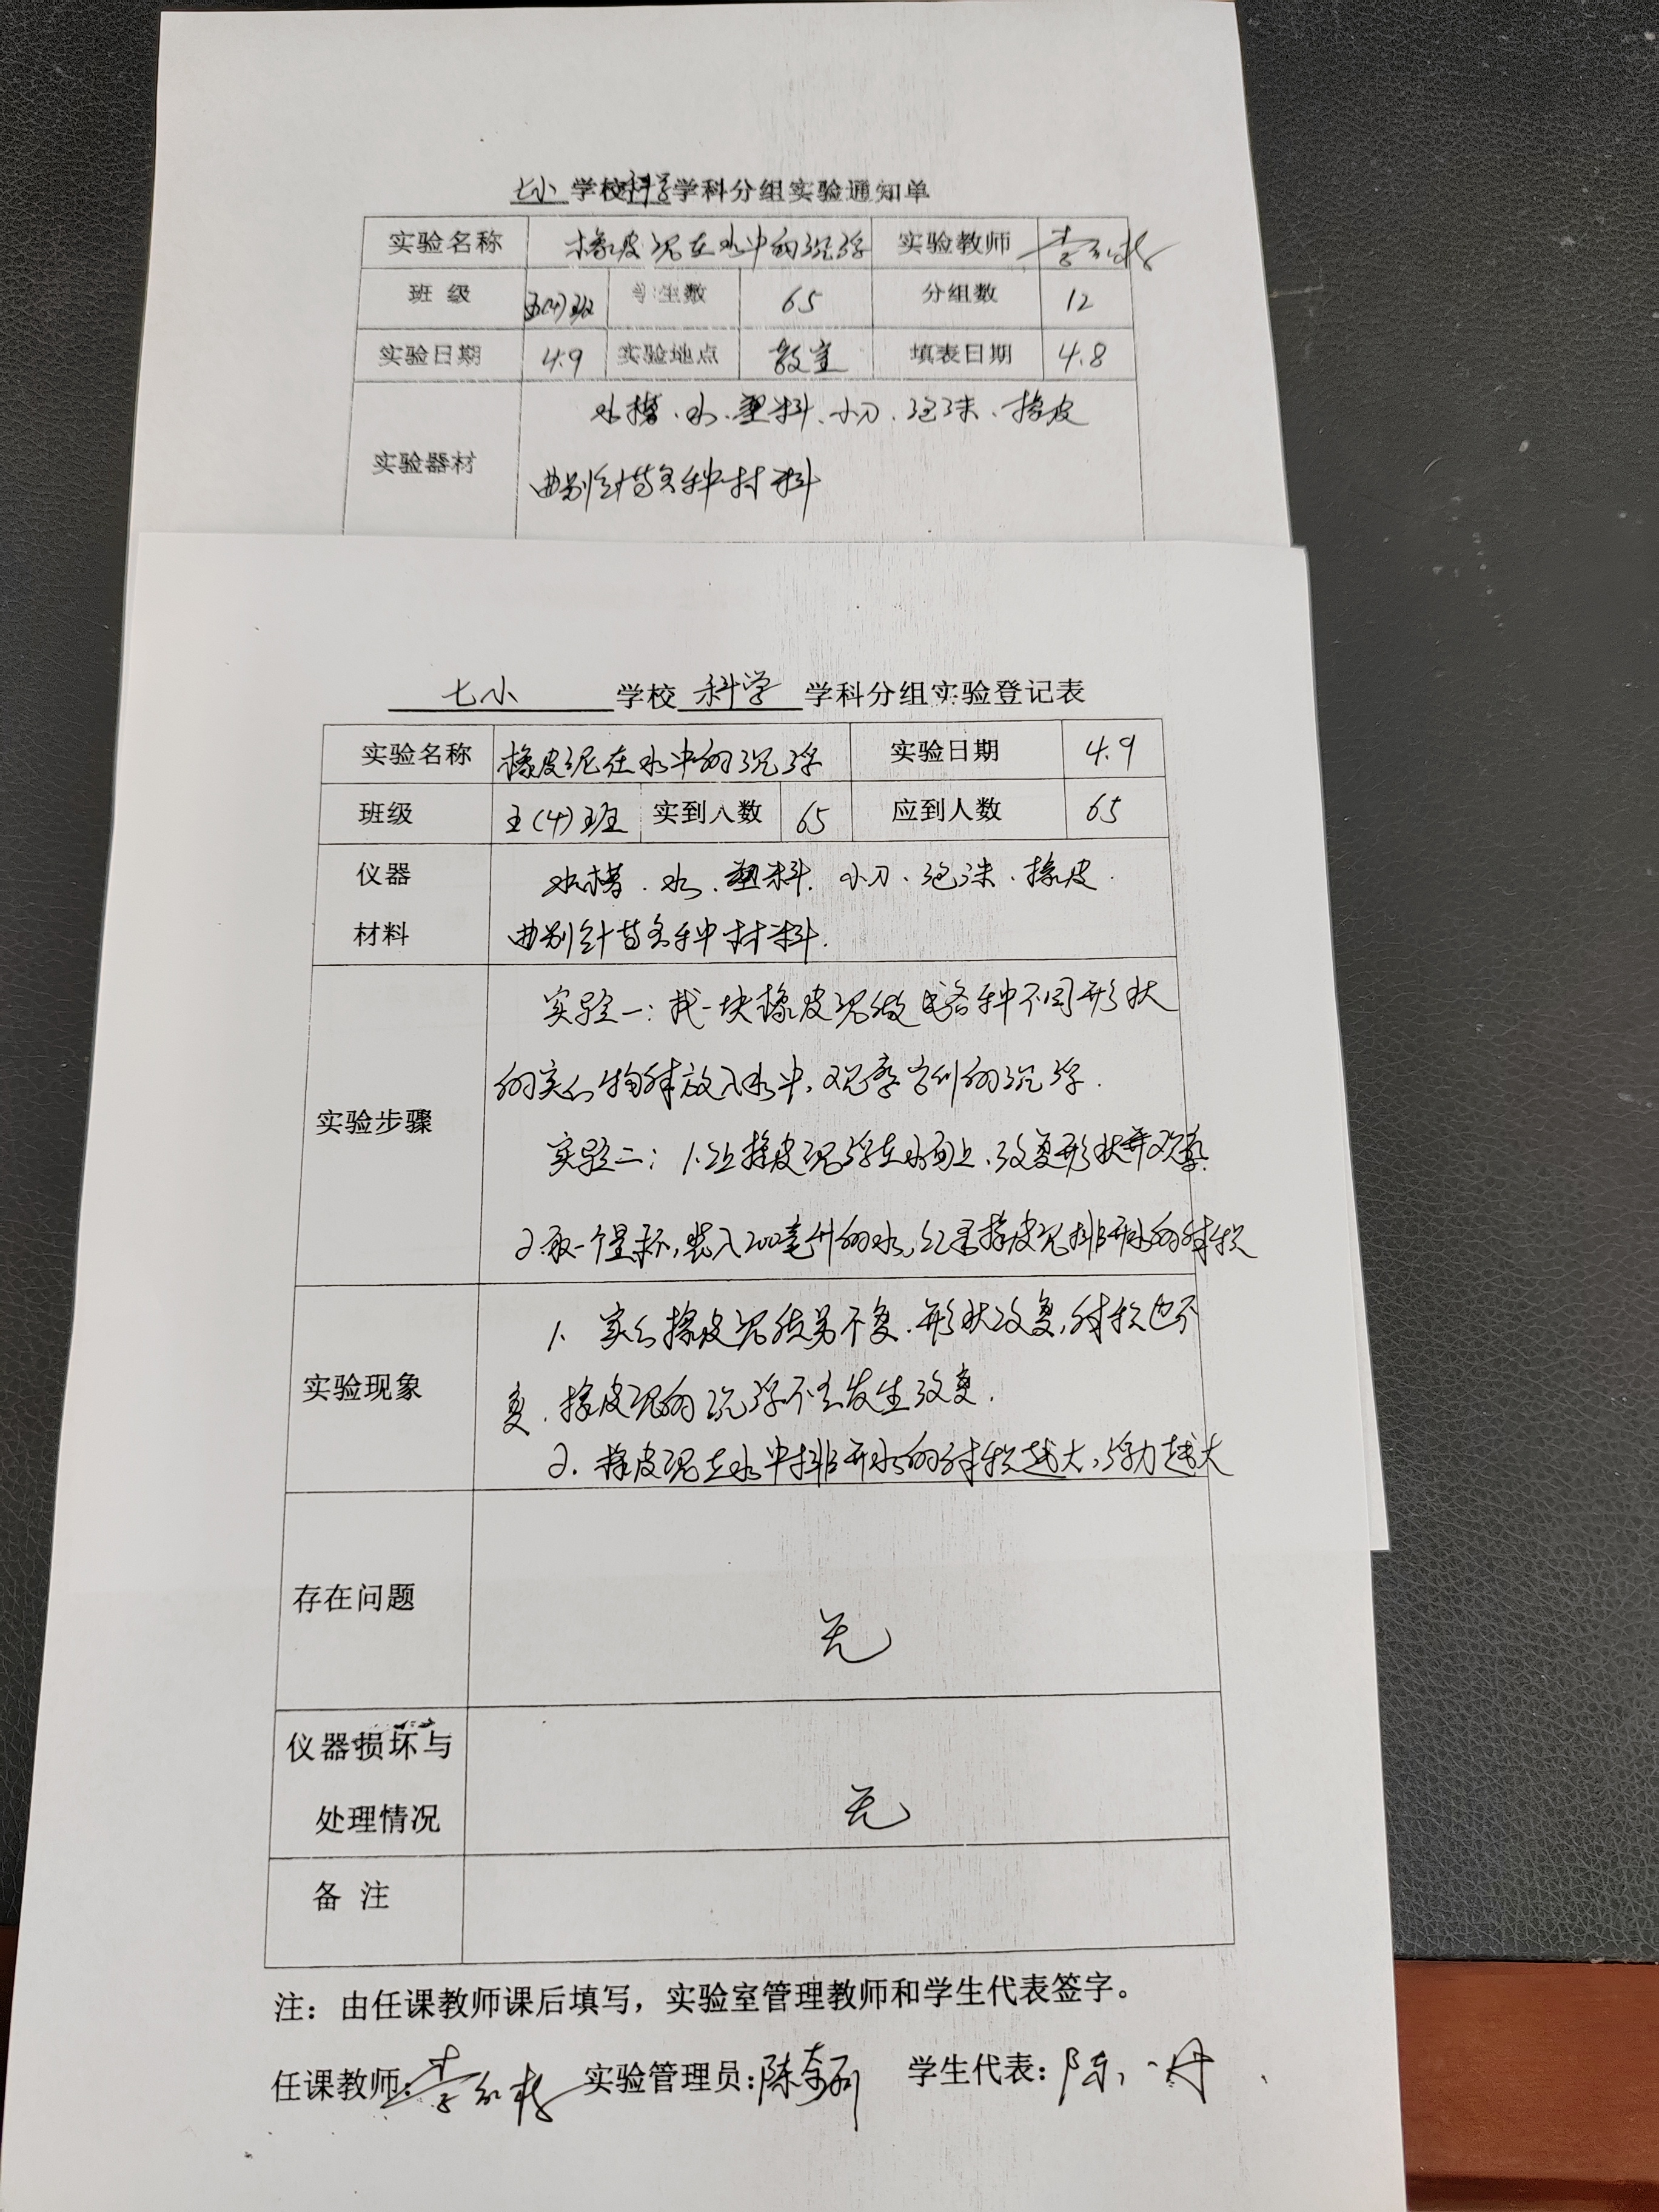 七小 学校科学学科分组实验通知单
实验名称 橡皮泥在水中的沉浮 实验教师
班 级 五(4)班 学生数 65 分组数 12
实验日期 4.9 实验地点 教室 填表日期 4.8
水槽、水、塑料、小刀、泡沫、橡皮
实验器材
曲别针等各种材料
七小 学校 科学 学科分组实验登记表
实验名称 橡皮泥在水中的沉浮 实验日期 4.9
班级 五(4)班 实到人数 65 应到人数 65
仪器 水槽、水、塑料、小刀、泡沫、橡皮、
材料 曲别针等各种材料.
实验一:找一块橡皮泥做成各种不同形状
的实心物体放入水中,观察它们的沉浮.
实验步骤
实验二:1.让橡皮泥浮在水面上、改变形状并观察.
2.取一个量杯,装入200毫升的水,记录橡皮泥排开水的体积
1. 实心橡皮泥质量不变.形状改变,体积也不
实验现象
变.橡皮泥的沉浮不会发生改变.
2.橡皮泥在水中排开水的体积越大,浮力越大
存在问题
无
仪器损坏与
无
处理情况
备 注
注：由任课教师课后填写，实验室管理教师和学生代表签字。
任课教师: 实验管理员: 学生代表: